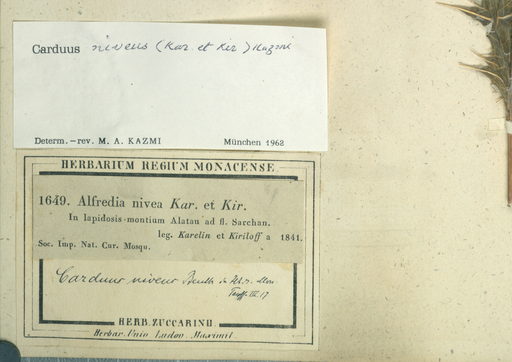 Carduus niveus (Kar. et Kir.) Kazmi
Determ.-rev. M. A. KAZMI München 1962
HERBARIUM REGIUM MONACENSE
1649. Alfredia nivea Kar. et Kir.
In lapidosis montium Alatau ad fl. Sarchan.
leg. Karelin et Kiriloff a 1841.
Soc. Imp. Nat. Cur. Mosqu.
Carduus niveus
HERB. ZUCCARINII
Herbar. Univ. Ludov. Maximil.